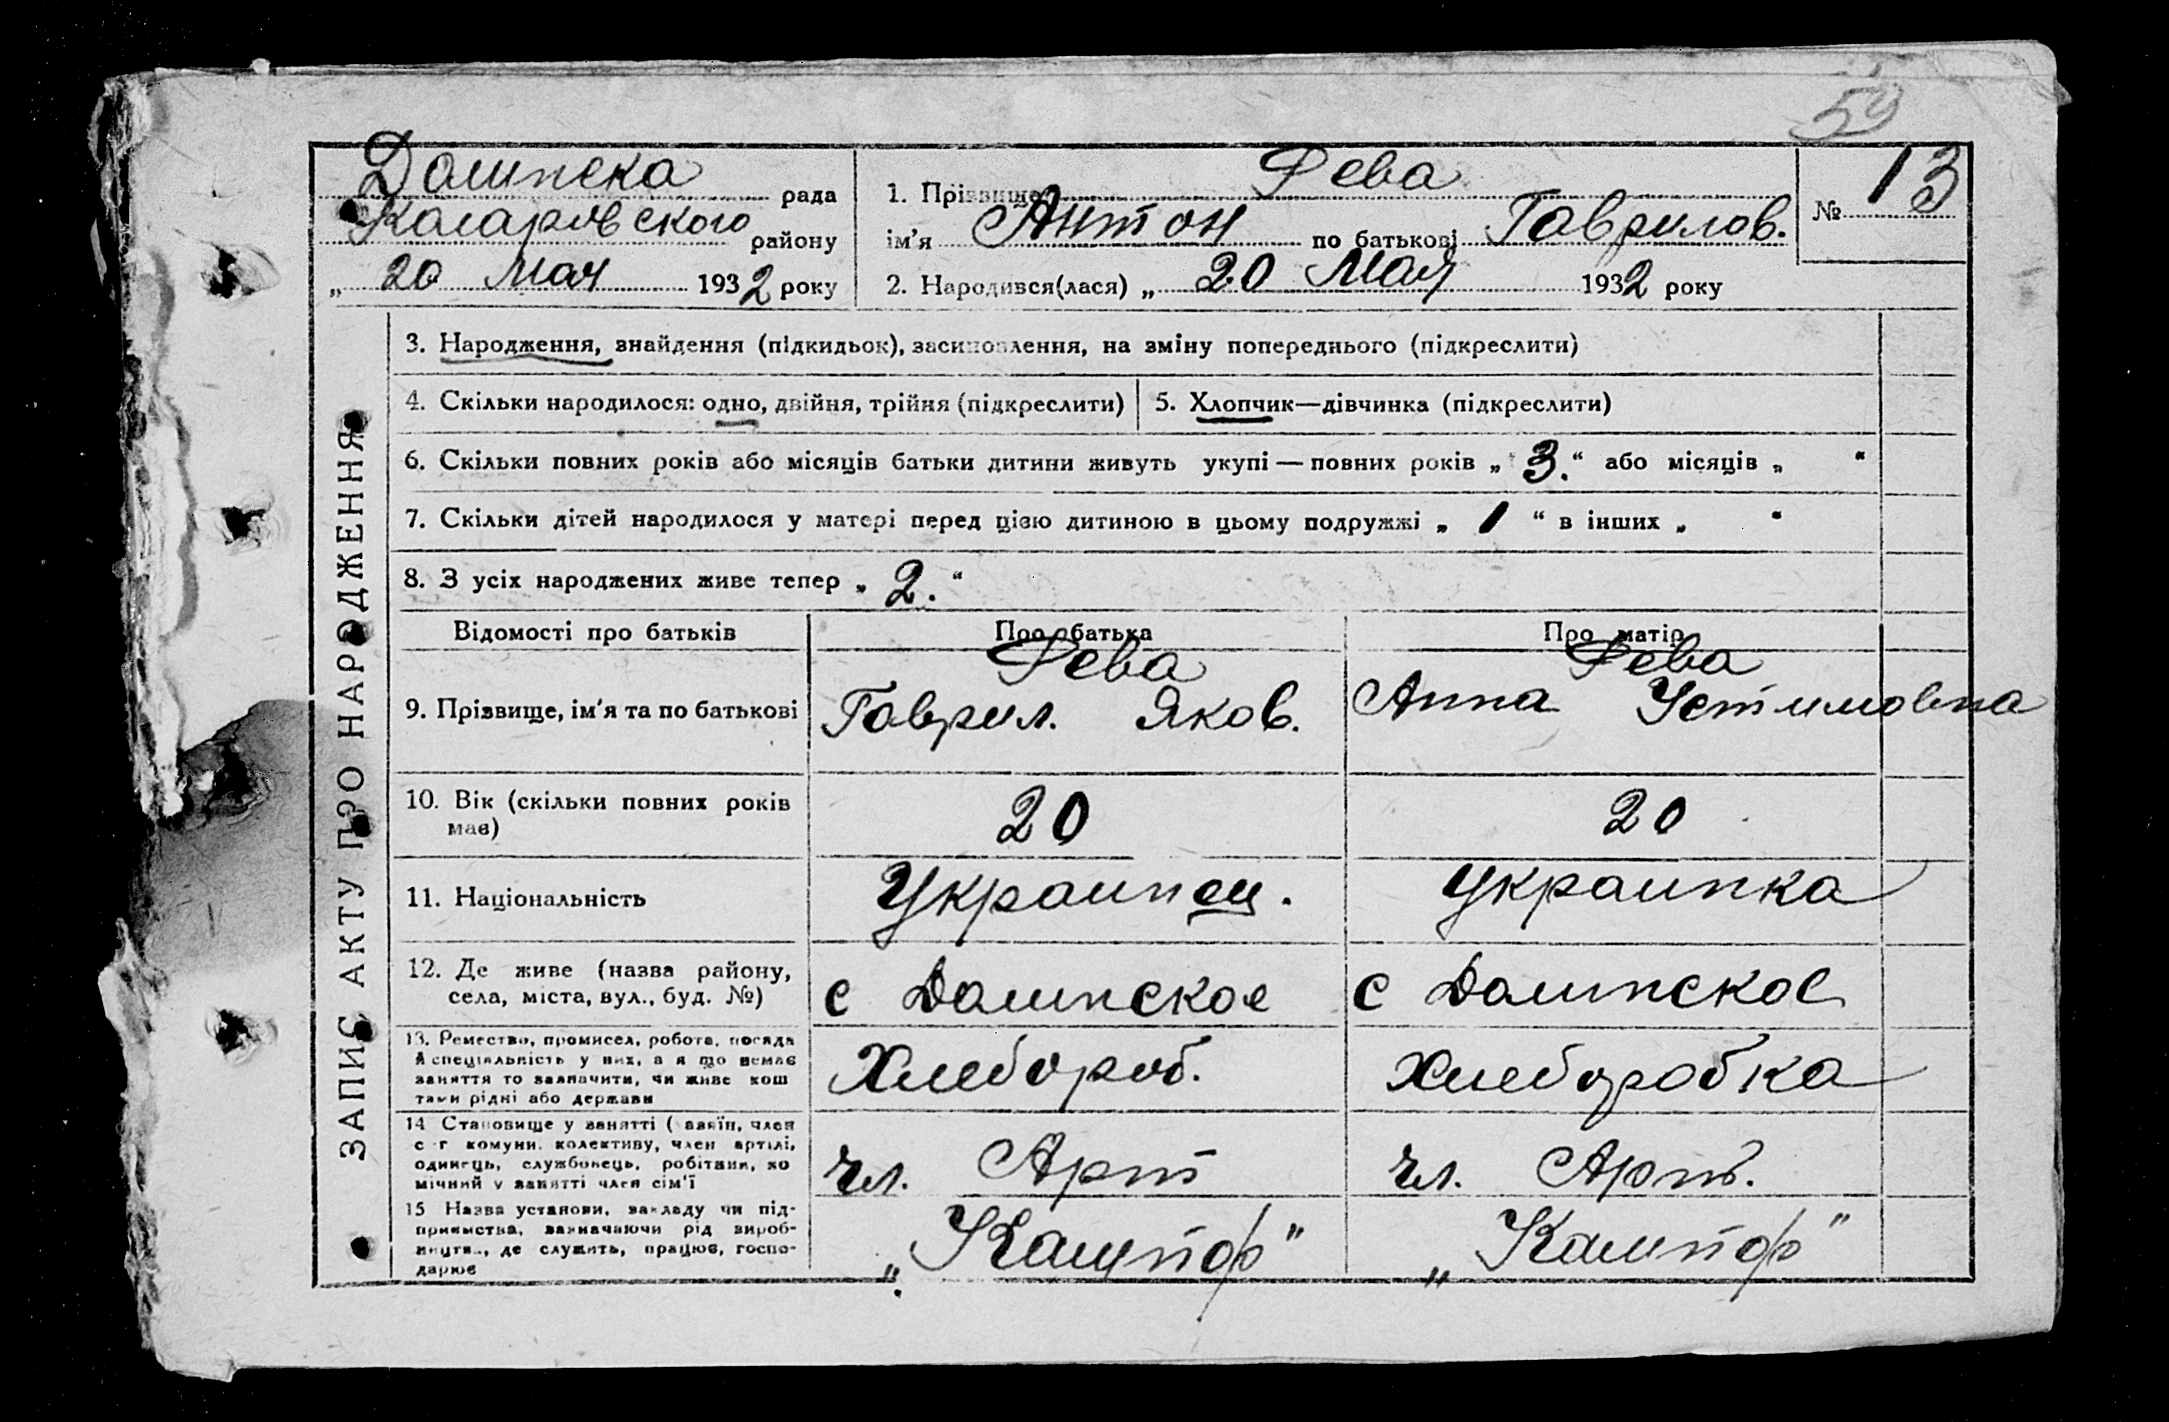 59
Долинска рада
Коларовского району
„ 20 Мая 1932 року
1. Прізвище Рева
ім’я Антон по батькові Гаврилов.
№ 13
2. Народився(лася) „ 20 Мая 1932 року
ЗАПИС АКТУ ПРО НАРОДЖЕННЯ
3. Народження, знайдення (підкидьок), засиновлення, на зміну попереднього (підкреслити)
4. Скільки народилося: одно, двійня, трійня (підкреслити)
5. Хлопчик—дівчинка (підкреслити)
6. Скільки повних років або місяців батьки дитини живуть укупі — повних років „ 3. “ або місяців „ “
7. Скільки дітей народилося у матері перед цією дитиною в цьому подружжі „ 1 “ в інших „ “
8. З усіх народжених живе тепер „ 2. “
Відомості про батьків
Про батька
Про матір
9. Прізвище, ім’я та по батькові
Рева
Гаврил. Яков.
Рева
Анна Устимовна
10. Вік (скільки повних років
має)
20
20
11. Національність
Украинец.
Украинка
12. Де живе (назва району,
села, міста, вул., буд. №)
с Долинское
с Долинское
13. Ремество, промисел, робота, посада
й спеціяльність у них, а я що немає
заняття то зазначити, чи живе кош
тами рідні або держави
Хлебороб.
Хлеборобка
14 Становище у занятті ( азяїн, член
с г комуни, колективу, член артілі,
одинець, службовець, робітник, по
мічний у занятті член сім’ї
чл. Арт
чл. Арт.
15 Назва установи, закладу чи під-
приємства, зазначаючи рід вироб-
ництва, де служить, працює, госпо-
дарює
„Кампф“
„Кампф“